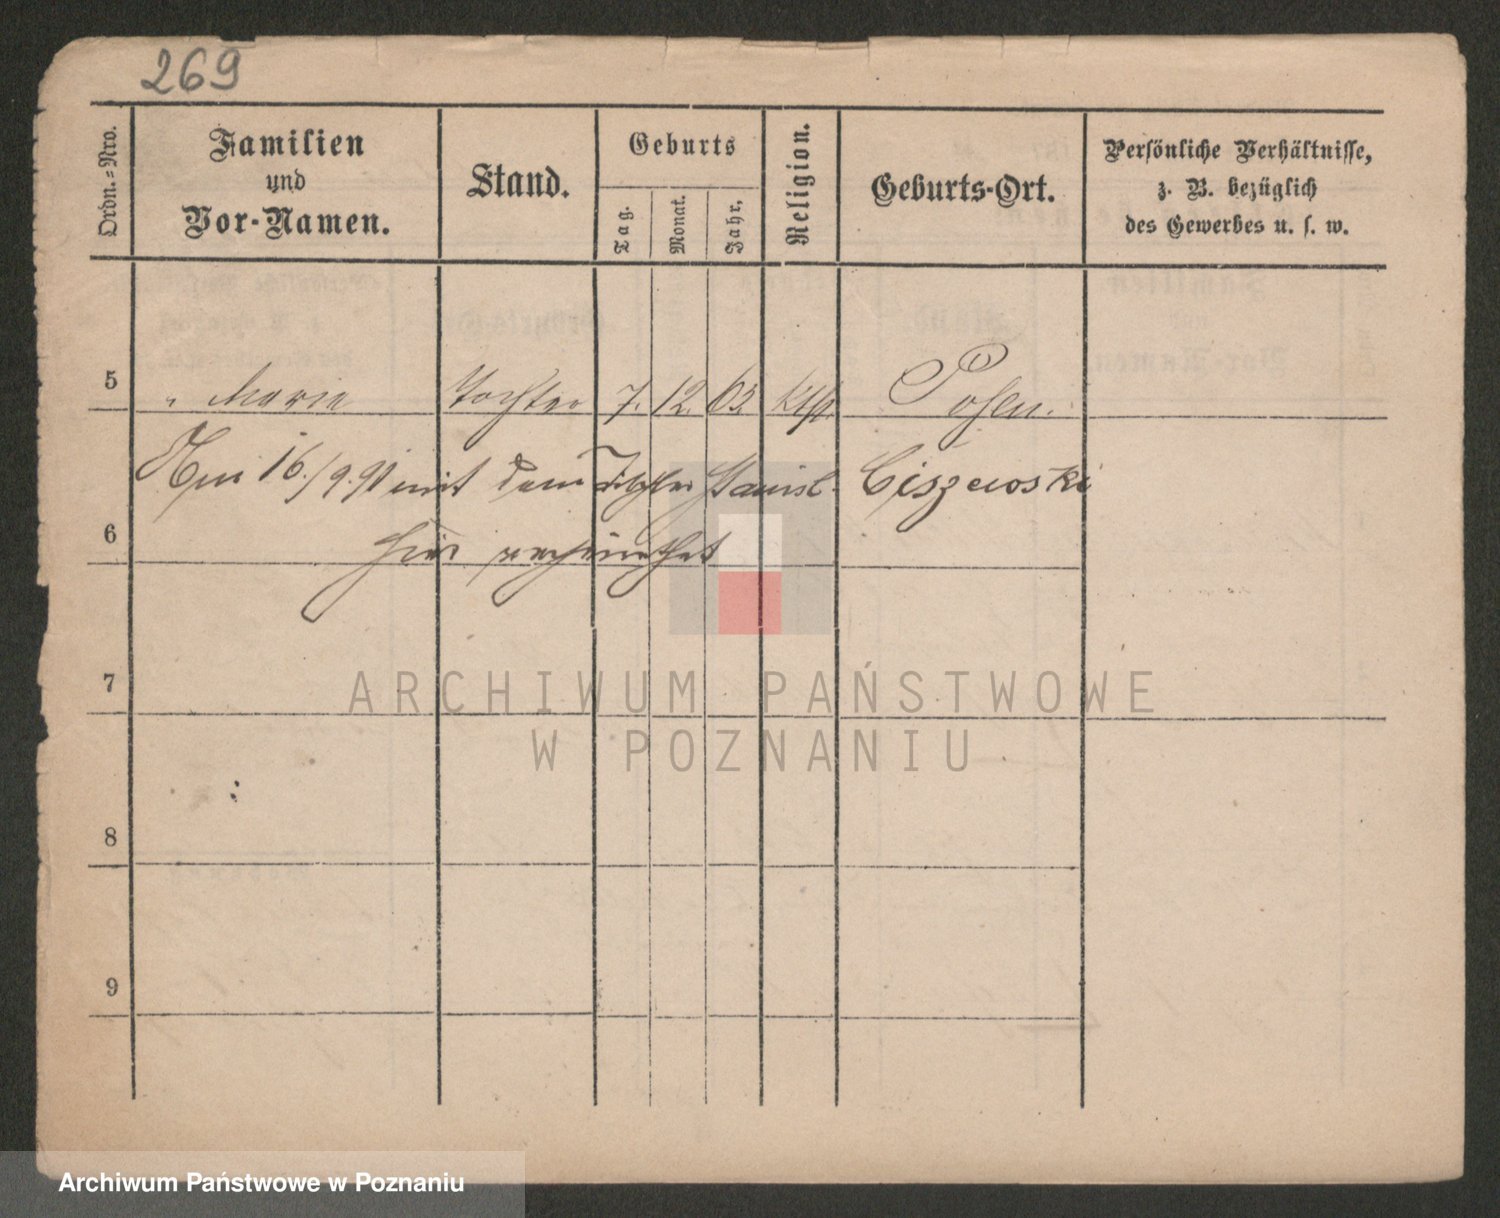 269
Ordn.-Nro.
Familien
und
Vor-Namen.
Stand.
Geburts
Tag.
Monat.
Jahr.
Religion.
Geburts-Ort.
Persönliche Verhältnisse,
z. B. bezüglich
des Gewerbes u. s. w.
5
" Marie Tochter 7. 12. 63 kth. Posen.
Am 16./9.91 mit dem Stanisl. Ciszewoski
6
hier verheirathet
7
8
9
ARCHIWUM PAŃSTWOWE
W POZNANIU
Archiwum Państwowe w Poznaniu